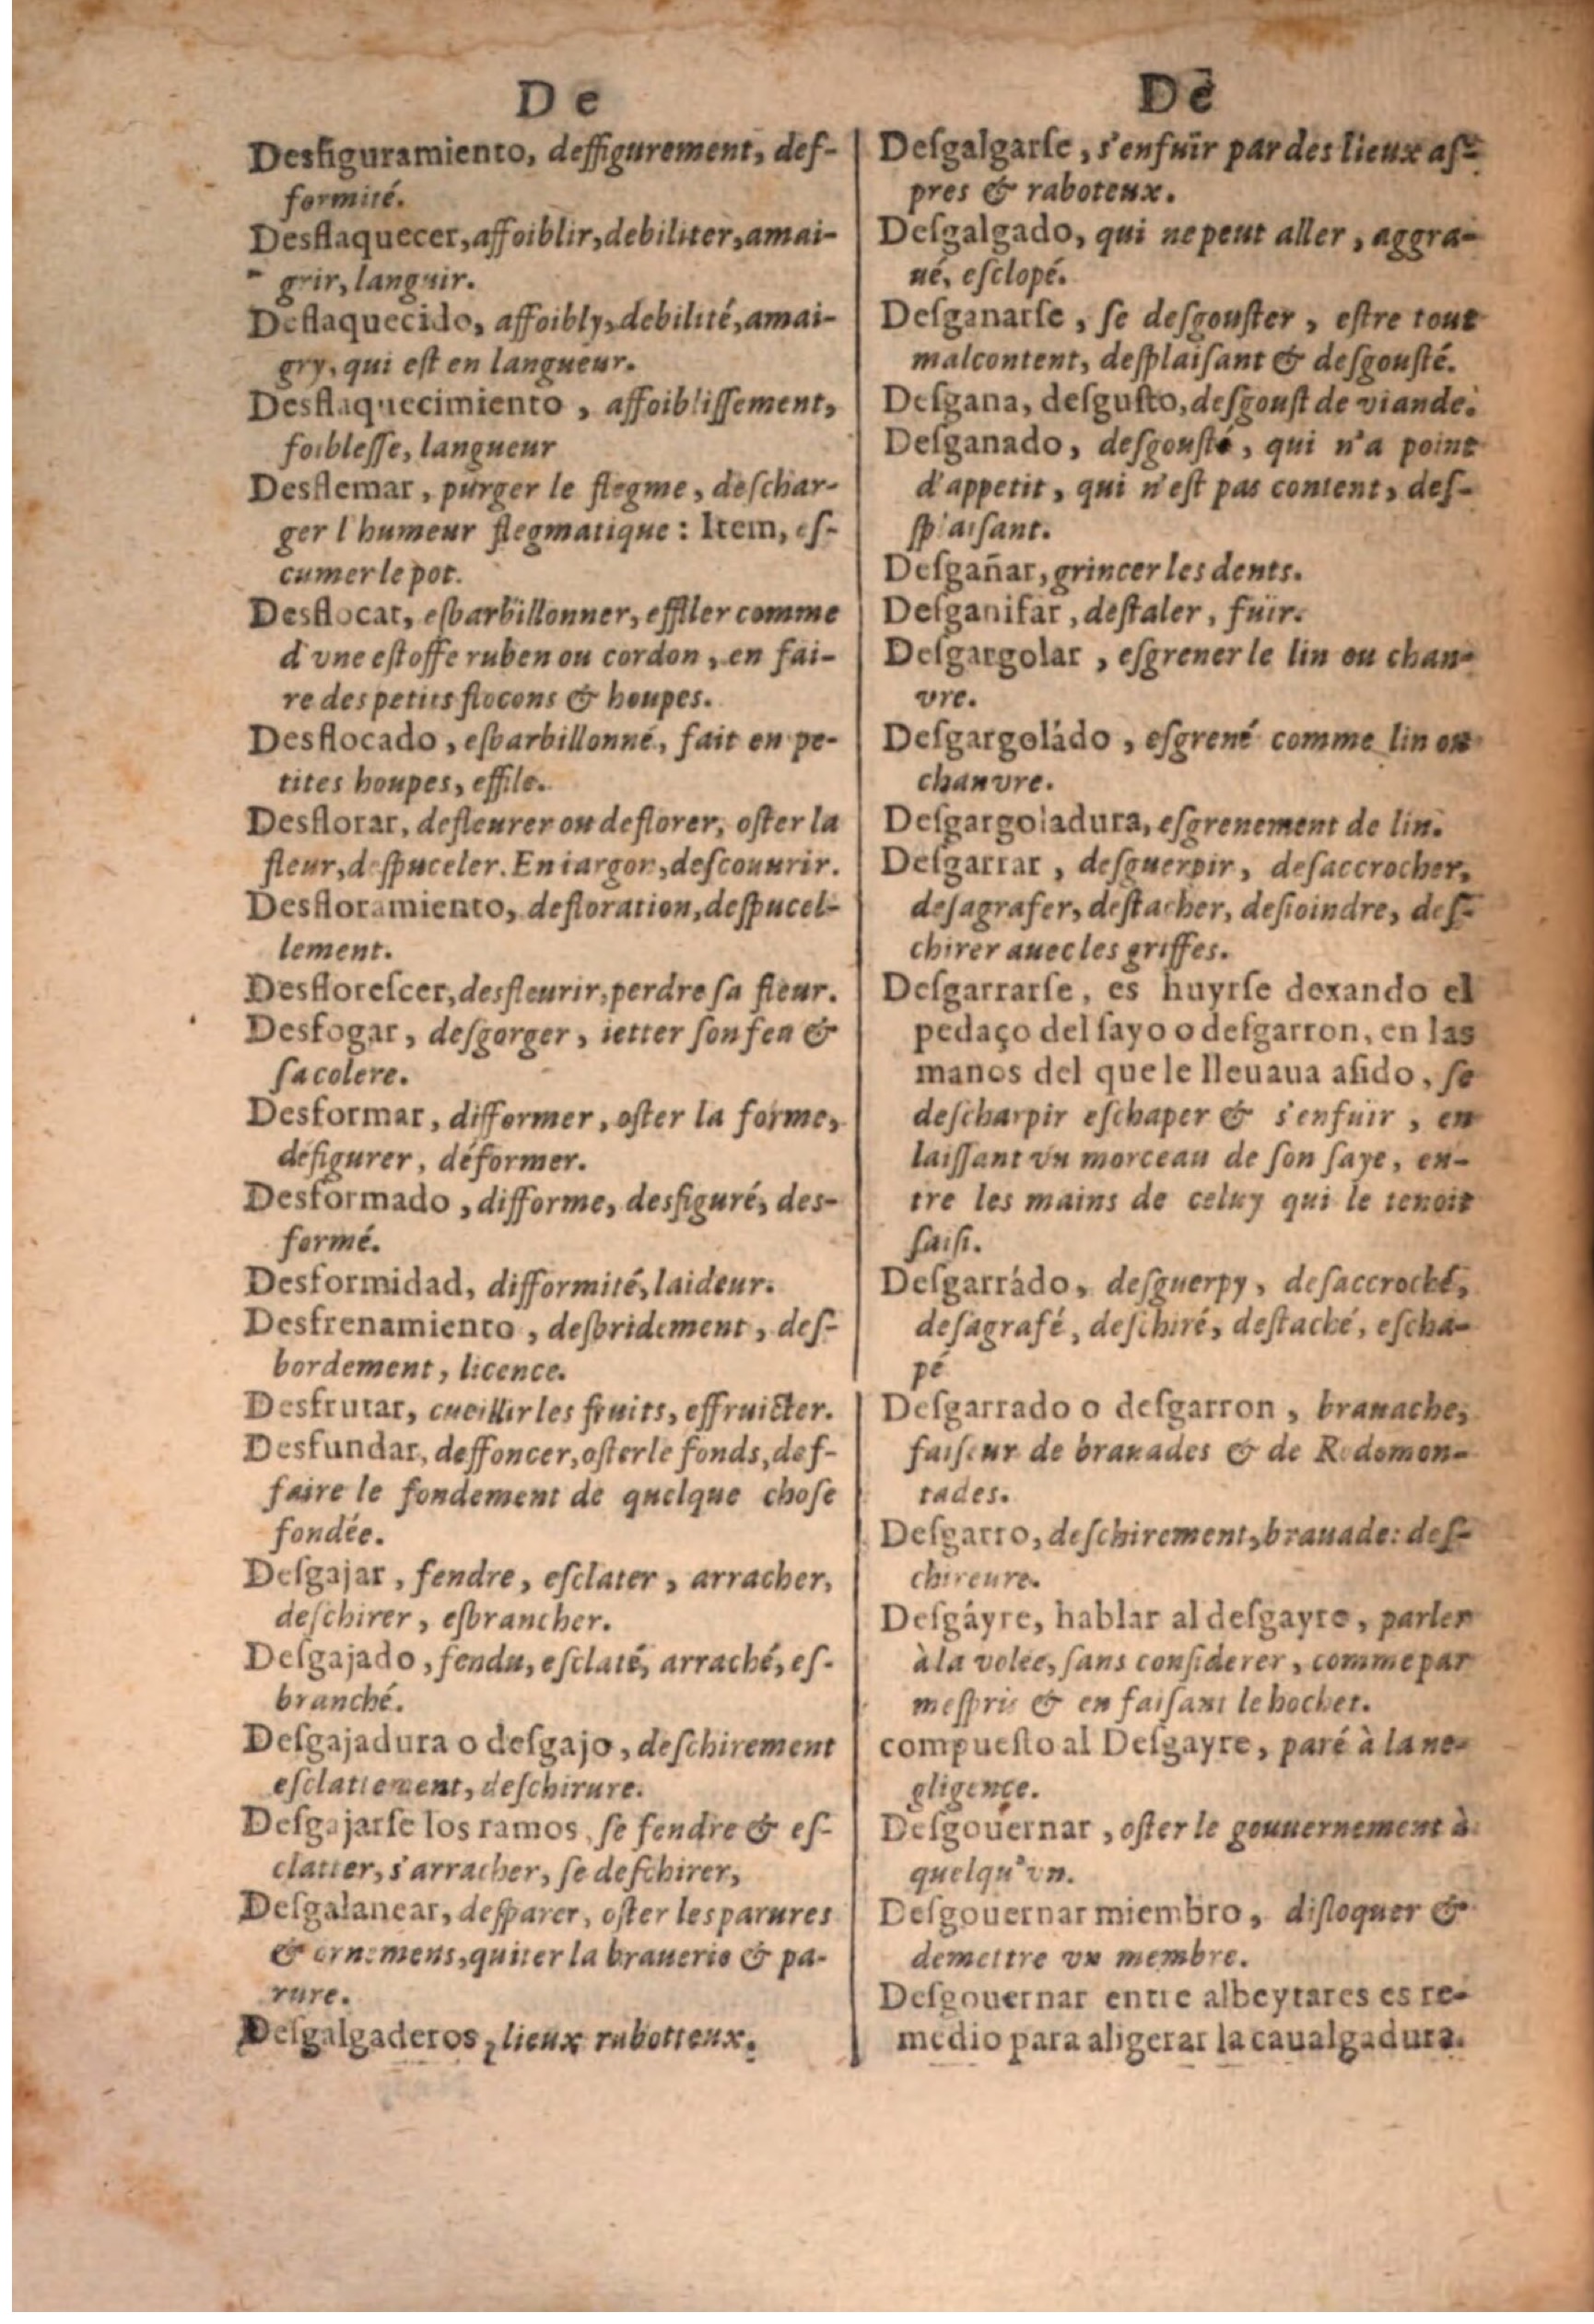 De
Desfiguramiento, deffigurement, def-
formité.
Desflaquecer, affoiblir, debiliter, amai-
grir, languir.
Deflaquecido, affoibly, debilité, amai-
gry, qui eſt en langueur.
Desflaquecimiento, affoibliſſement,
foibleſſe, langueur
Desflemar, purger le flegme, deſchar-
ger l'humeur flegmatique: Item, eſ-
cumer le pot.
Desflocar, eſbarbillonner, effiler comme
d'vne eſtoffe ruben ou cordon, en fai-
re des petits flocons & houpes.
Desflocado, eſbarbillonné, fait en pe-
tites houpes, effile.
Desflorar, defleurer ou deflorer, oſter la
fleur, deſpuceler. En iargon, deſcouurir.
Desfloramiento, defloration, deſpucel-
lement.
Desfloreſcer, desfleurir, perdre ſa fleur.
Desfogar, deſgorger, ietter ſon feu &
ſa colere.
Desformar, difformer, oſter la forme,
défigurer, déformer.
Desformado, difforme, desfiguré, des-
formé.
Desformidad, difformité, laideur.
Desfrenamiento, deſbridement, deſ-
bordement, licence.
Desfrutar, cueillir les fruits, effruicter.
Desfundar, deffoncer, oſter le fonds, def-
faire le fondement de quelque choſe
fondée.
Deſgajar, fendre, eſclater, arracher,
deſchirer, eſbrancher.
Deſgajado, fendu, eſclaté, arraché, eſ-
branché.
Deſgajadura o deſgajo, deſchirement
eſclattement, deſchirure.
Deſgajarſe los ramos, ſe fendre & eſ-
clatter, s'arracher, ſe deſchirer,
Deſgalanear, deſparer, oſter les parures
& ornemens, quitter la brauerie & pa-
rure.
Deſgalgaderos, lieux rabotteux.
De
Deſgalgarſe, s'enfuïr par des lieux aſ-
pres & raboteux.
Deſgalgado, qui ne peut aller, aggra-
ué, eſclopé.
Deſganarſe, ſe deſgouſter, eſtre tout
malcontent, deſplaiſant & deſgouſté.
Deſgana, deſguſto, deſgouſt de viande.
Deſganado, deſgouſté, qui n'a point
d'appetit, qui n'eſt pas content, deſ-
plaiſant.
Deſgañar, grincer les dents.
Deſganifar, deſtaler, fuïr.
Deſgargolar, eſgrener le lin ou chan-
vre.
Deſgargoládo, eſgrené comme lin ou
chanvre.
Deſgargoladura, eſgrenement de lin.
Deſgarrar, deſguerpir, deſaccrocher,
deſagrafer, deſtacher, deſioindre, deſ-
chirer auec les griffes.
Deſgarrarſe, es huyrſe dexando el
pedaço del ſayo o deſgarron, en las
manos del que le lleuaua aſido, ſe
deſcharpir eſchaper & s'enfuïr, en
laiſſant vn morceau de ſon ſaye, en-
tre les mains de celuy qui le tenoit
ſaiſi.
Deſgarrádo, deſguerpy, deſaccroché,
deſagrafé, deſchiré, deſtaché, eſcha-
pé
Deſgarrado o deſgarron, brauache,
faiſeur de brauades & de Rodomon-
tades.
Deſgarro, deſchirement, brauade: deſ-
chireure.
Deſgáyre, hablar al deſgayre, parler
à la volée, ſans conſiderer, comme par
meſpris & en faiſant le hochet.
compueſto al Deſgayre, paré à la ne-
gligence.
Deſgouernar, oſter le gouuernement à
quelqu'vn.
Deſgouernar miembro, diſloquer &
demettre vn membre.
Deſgouernar entre albeytares es re-
medio para aligerar la caualgadura.